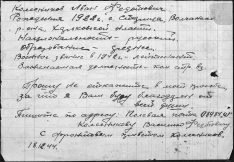 Колесников Иван Федотович
Рождения 1922 г. с. Стецовка, 
р-на, Харьковской области.
Национальность - русский
Образование - среднее
Военное звание в 1942 г. - лейтенант
Занимаемая должность - ком.
Прошу не отказать в моей просьбе,
за что я Вам буду благодарен от
всей души.
Пишите по адресу: Полевая почта
Колесникову
С фронтовым приветом Колесников.
18.12.44.